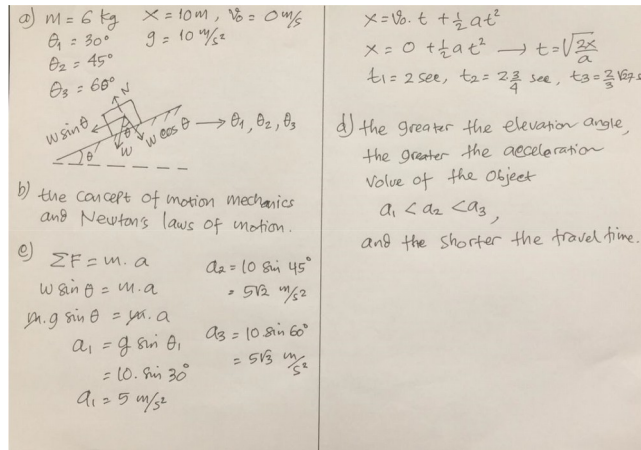 a) m = 6 kg x = 10m , v₀ = 0 m/s
θ₁ = 30° g = 10 m/s²
θ₂ = 45°
θ₃ = 60°
N
w sin θ w cos θ → θ₁, θ₂, θ₃
θ
θ w
b) the concept of motion mechanics
and Newton's laws of motion.
c) ΣF = m. a
w sin θ = m. a
m. g sin θ = m. a
a₁ = g sin θ₁
= 10. sin 30°
a₁ = 5 m/s²
a₂ = 10 sin 45°
= 5√2 m/s²
a₃ = 10 sin 60°
= 5√3 m/s²
x = v₀. t + 1/2 at²
x = 0 + 1/2 at² → t = √2x/a
t₁ = 2 sec, t₂ = 2 3/4 sec, t₃ = 2/3 √27 s
d) the greater the elevation angle,
the greater the acceleration
value of the object
a₁ < a₂ < a₃,
and the shorter the travel time.